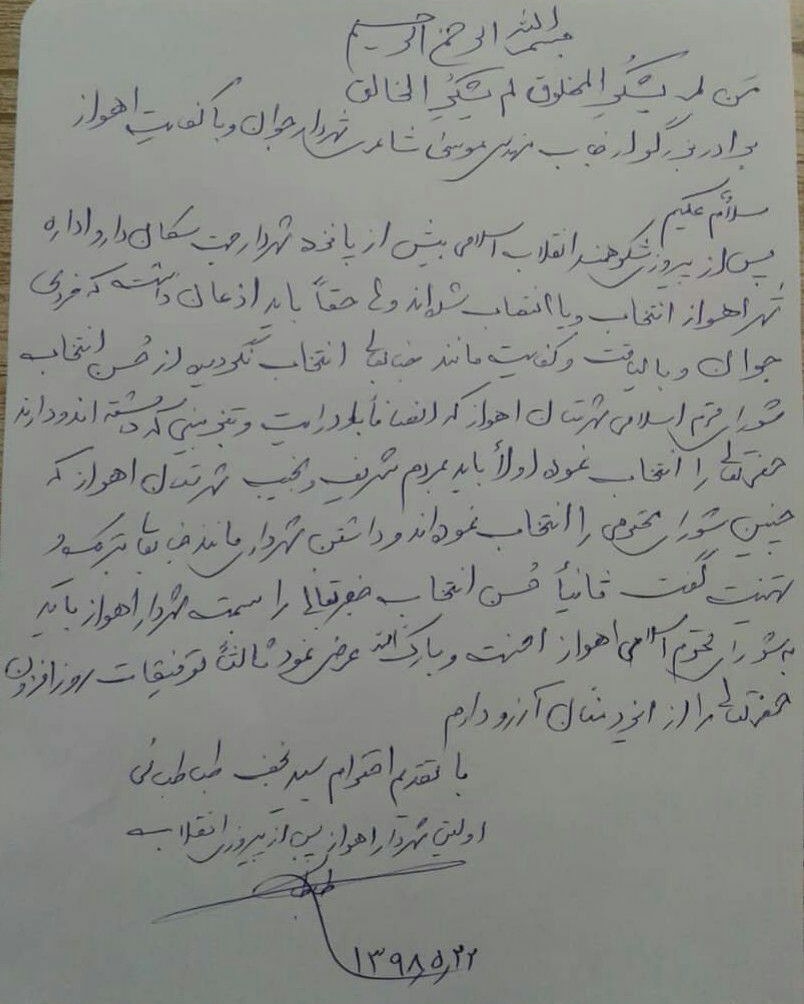 بسم الله الرحمن الرحیم
من لم یشکر المخلوق لم یشکر الخالق
برادر بزرگوار جناب مهندس موسی شاعری شهردار جوان و با کفایت اهواز
سلام علیکم
پس از پیروزی شکوهمند انقلاب اسلامی بیش از پانزده شهردار جهت سکان دار و اداره
شهر اهواز انتخاب و یا انتصاب شده‌اند ولی حقاً باید اذعان داشت که فردی
جوان و با لیاقت و کفایت مانند جنابعالی انتخاب نگردیده از حُسن انتخاب
شورای محترم اسلامی شهرتان اهواز که انصافاً با درایت و تیزبینی که داشته اند و دارند
حضرتعالی را انتخاب نموده اولاً باید بمردم شریف و نجیب شهرتان اهواز که
چنین شورای محترمی را انتخاب نموده‌اند و داشتن شهرداری مانند جنابعالی تبریک و
تهنیت گفت ثانیاً حُسن انتخاب حضرتعالی را بسمت شهردار اهواز باید
به شورای محترم اسلامی اهواز احسنت و بارک الله عرض نمود ثالثاً توفیقات روزافزون
حضرتعالی را از ایزد منان آرزو دارم
با تقدیم احترام سید نجف طباطبائی
اولین شهردار اهواز پس از پیروزی انقلاب
۱۳۹۸٫۵٫۲۲